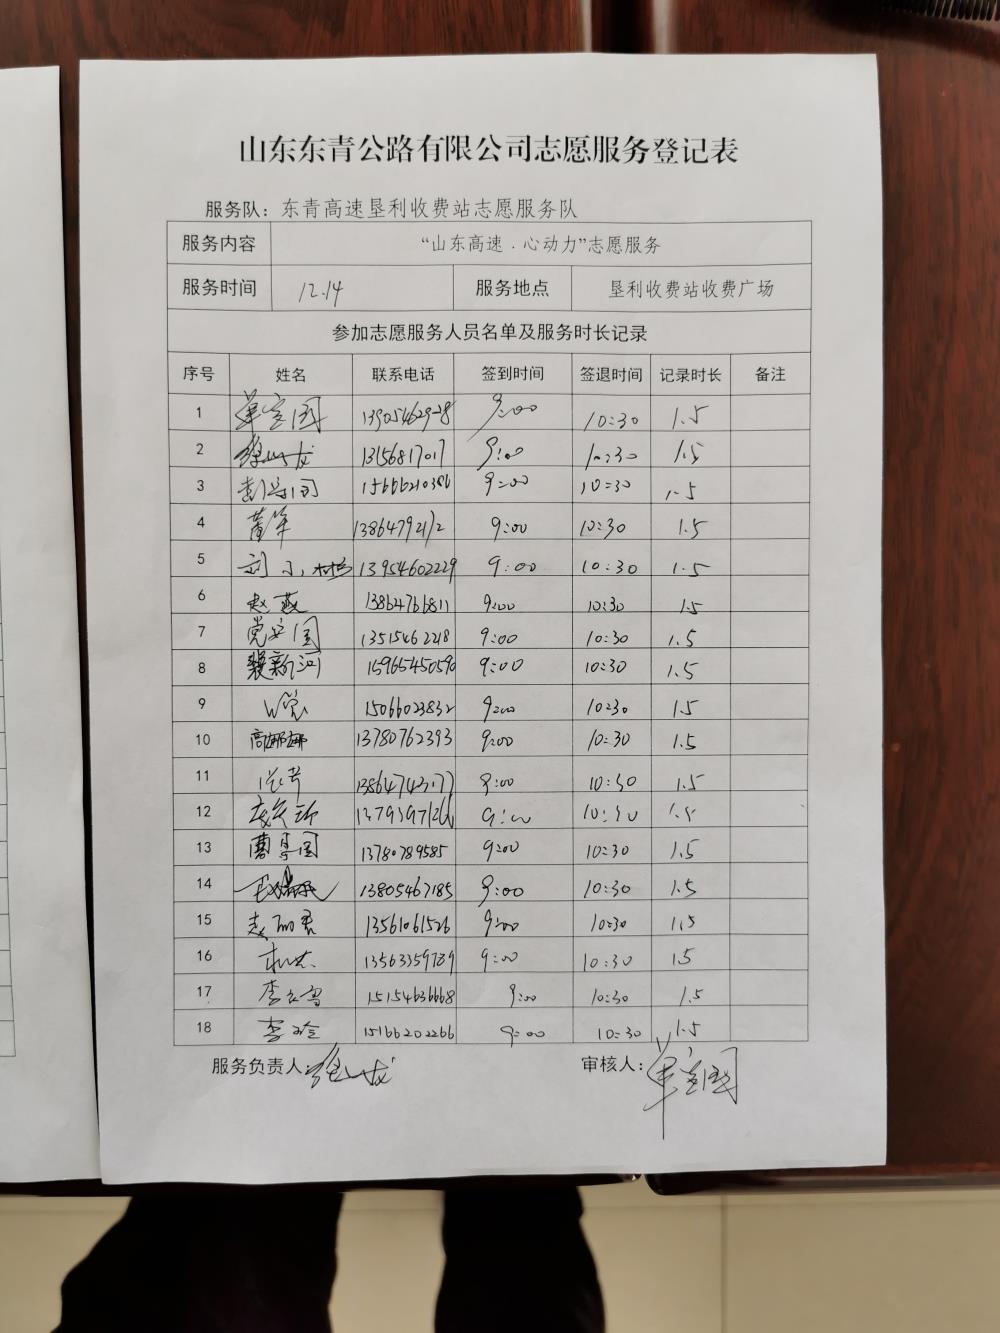 山东东青公路有限公司志愿服务登记表
服务队：东青高速垦利收费站志愿服务队
服务内容 “山东高速．心动力”志愿服务
服务时间 12.14 服务地点 垦利收费站收费广场
参加志愿服务人员名单及服务时长记录
序号 姓名 联系电话 签到时间 签退时间 记录时长 备注
1 单宝国 13905462928 9:00 10:30 1.5
2 徐山龙 13156817017 9:00 10:30 1.5
3 15666210386 9:00 10:30 1.5
4 董军 13864792172 9:00 10:30 1.5
5 刘小梅 13954602229 9:00 10:30 1.5
6 赵燕 13864766811 9:00 10:30 1.5
7 党安国 13515462218 9:00 10:30 1.5
8 裴新河 15965450590 9:00 10:30 1.5
9 15066023832 9:00 10:30 1.5
10 高娜娜 13780762393 9:00 10:30 1.5
11 13864743177 9:00 10:30 1.5
12 9:00 10:30 1.5
13 曹早国 13780789585 9:00 10:30 1.5
14 13805467185 9:00 10:30 1.5
15 13561061526 9:00 10:30 1.5
16 杜杰 13563359789 9:00 10:30 1.5
17 15154636668 9:00 10:30 1.5
18 李玲 15166202266 9:00 10:30 1.5
服务负责人 徐山龙 审核人： 单宝国